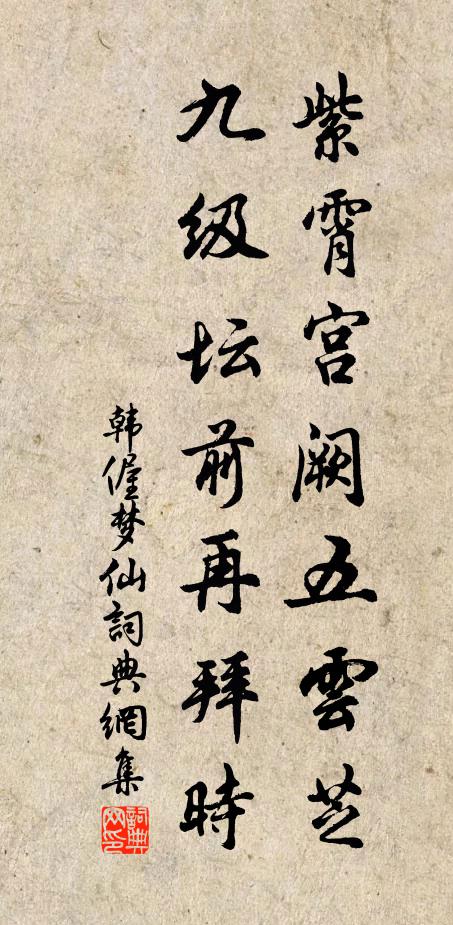 紫霄宫阙五雲芝
九级坛前再拜時
韩偓梦仙詞典網集
詞典网印